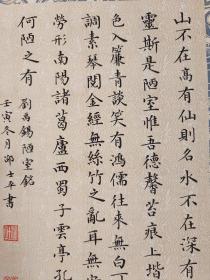 山不在高有仙則名水不在深有
靈斯是陋室惟吾德馨苔痕上揩
色入簾青談笑有鴻儒往来無白丁
調素琴閱金經無絲竹之亂耳無
勞形南陽諸葛廬西蜀子雲亭孔
何陋之有
劉禹錫陋室銘
壬寅冬月鄧士平書